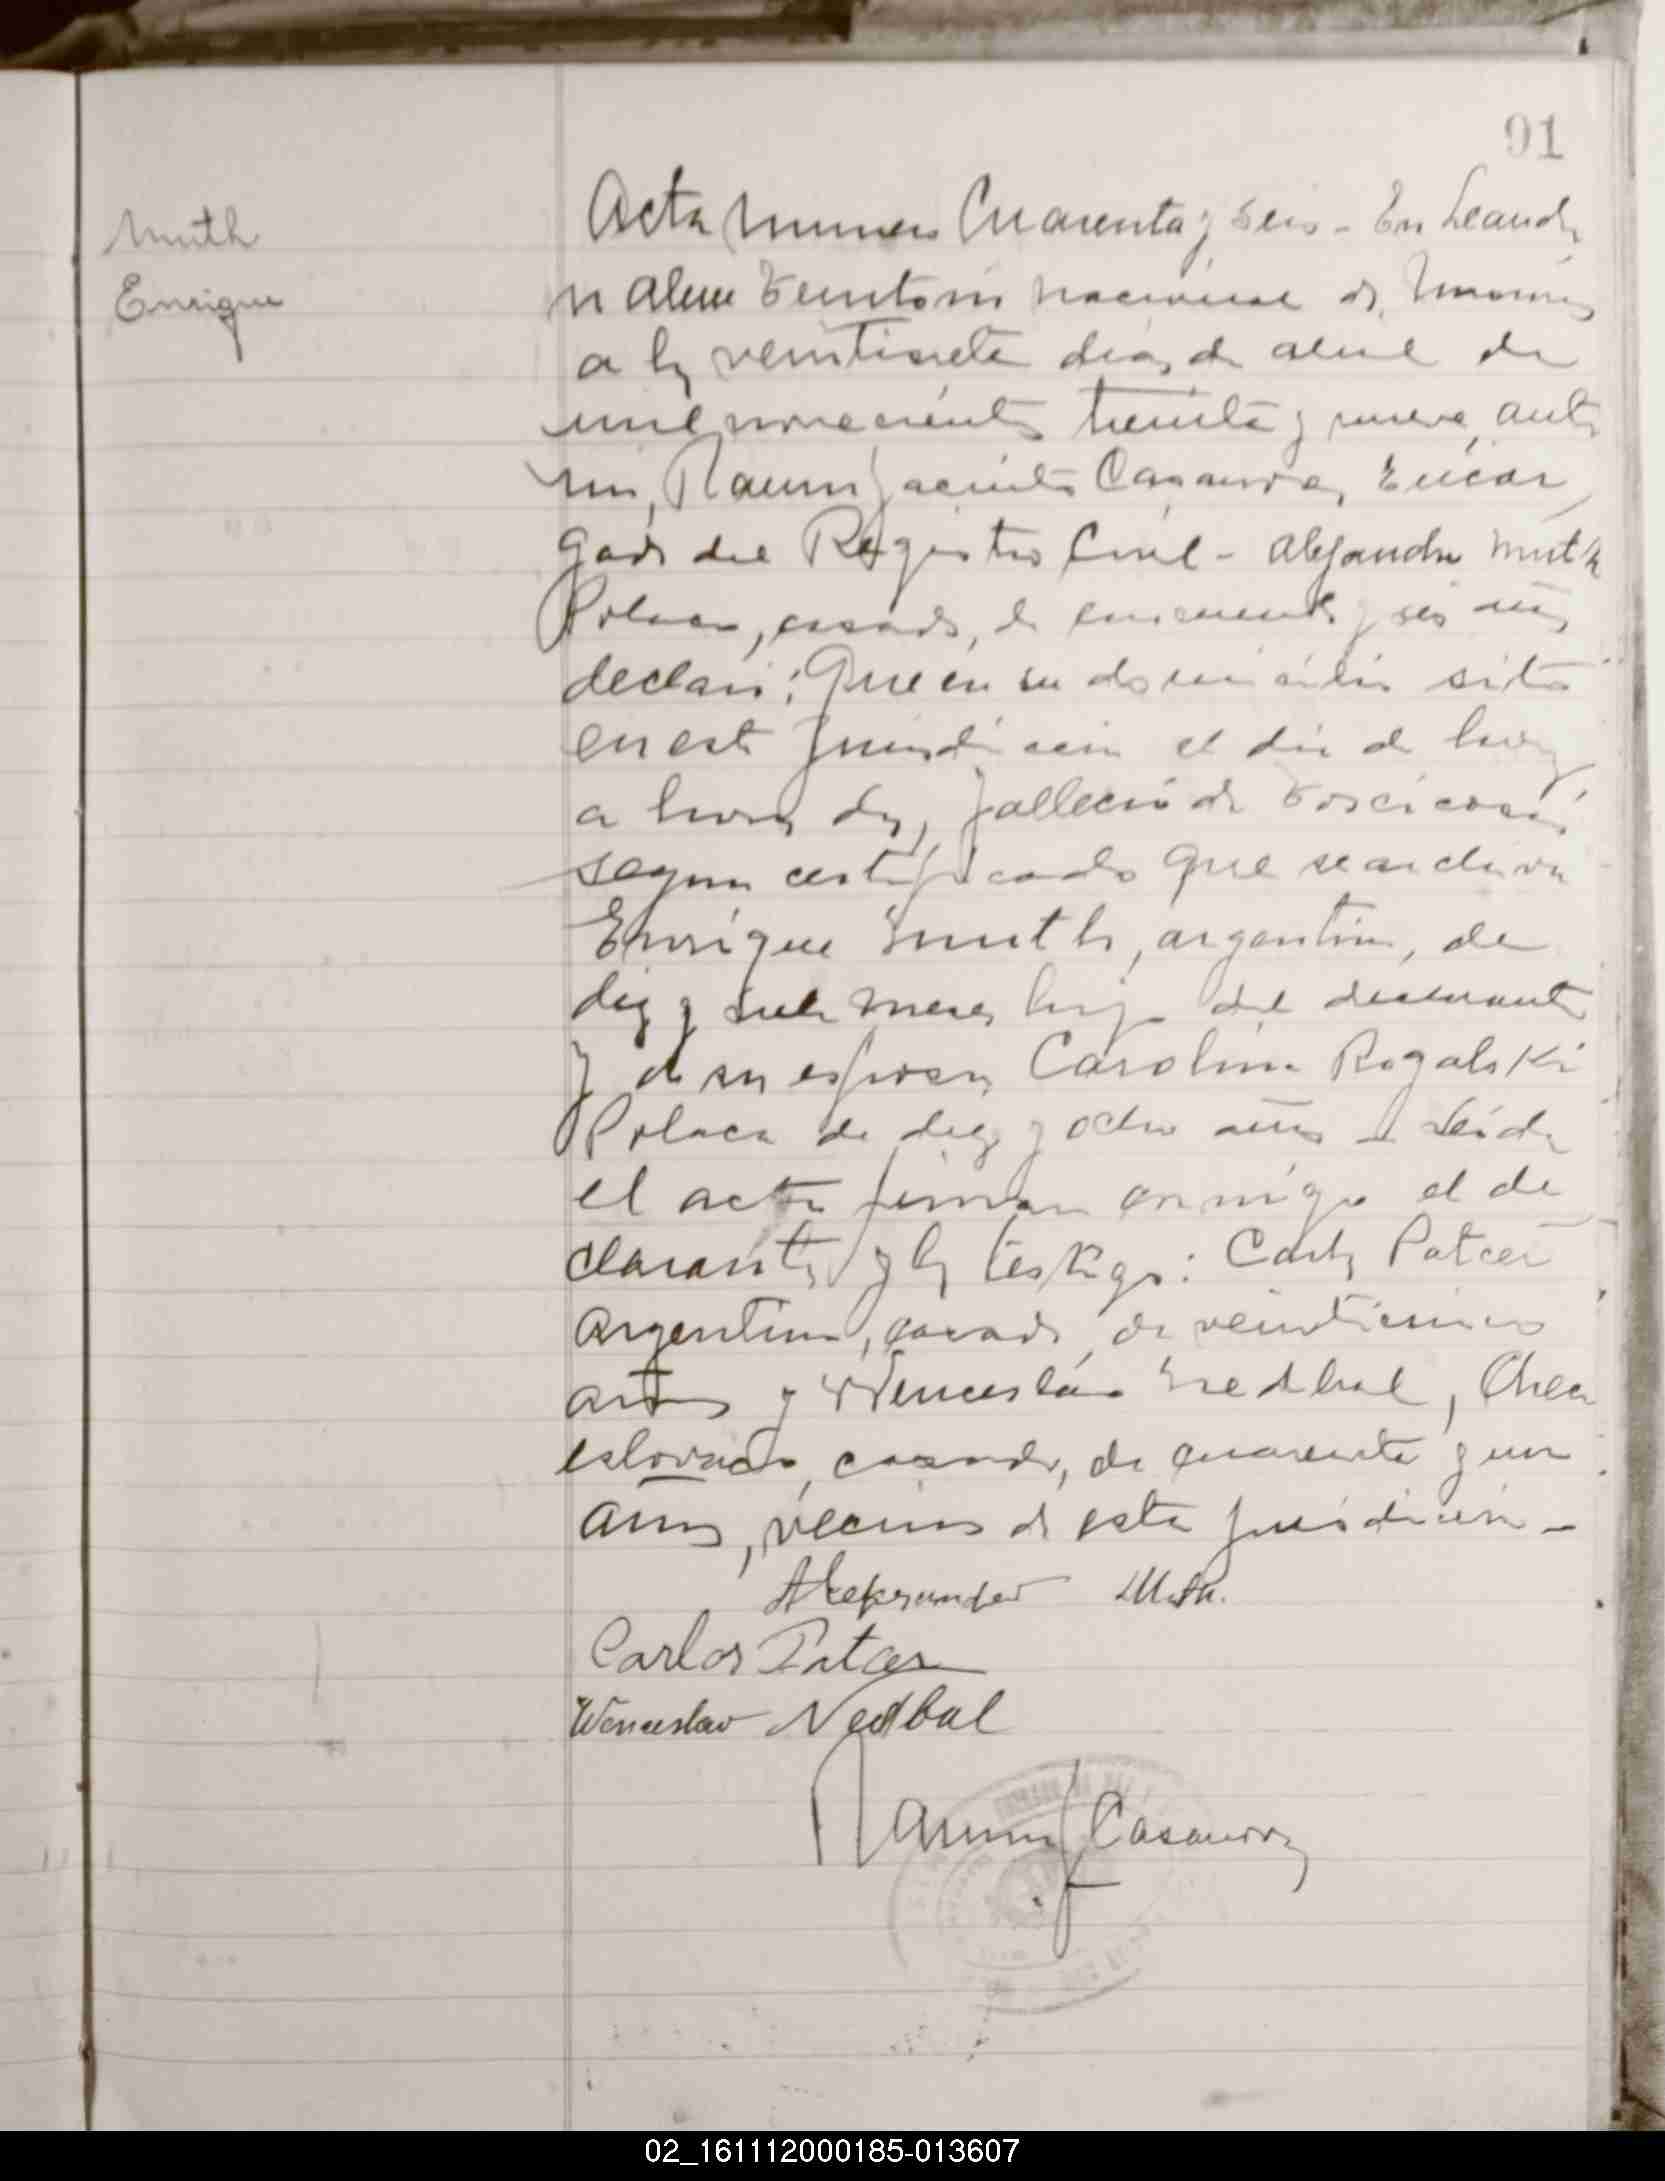 91
Muth
Enrique
Acta numero Cuarenta y seis - En Leandro
N Alem Territorio nacional de Misiones
a los veintisiete dias de abril de
mil novecientos treinta y nueve, ante
mi, Ramon Jacinto Casanova, Encar
gado del Registro Civil - Alejandro Muth
Polaco, casado, de cincuenta y seis años
declaró: Que en su domicilio sito
en esta jurisdiccion el dia de hoy
a horas dos, falleció de Toxicosis
segun certificado que se archiva
Enrique Muth, argentino, de
diez y siete meses hijo del declarante
y de su esposa Carolina Rogalski
Polaca de diez y ocho años - Leida
el acta firman conmigo el de
clarante y los testigos: Carlos Patcer
Argentino, casado de veinticinco
años y Wenceslao Nedbal, Checo
eslovaco, casado, de cuarenta y un
años, vecinos de esta jurisdiccion -
Aleksander Muth.
Carlos Patcer
Wenceslao Nedbal
Ramon J Casanova
02_161112000185-013607